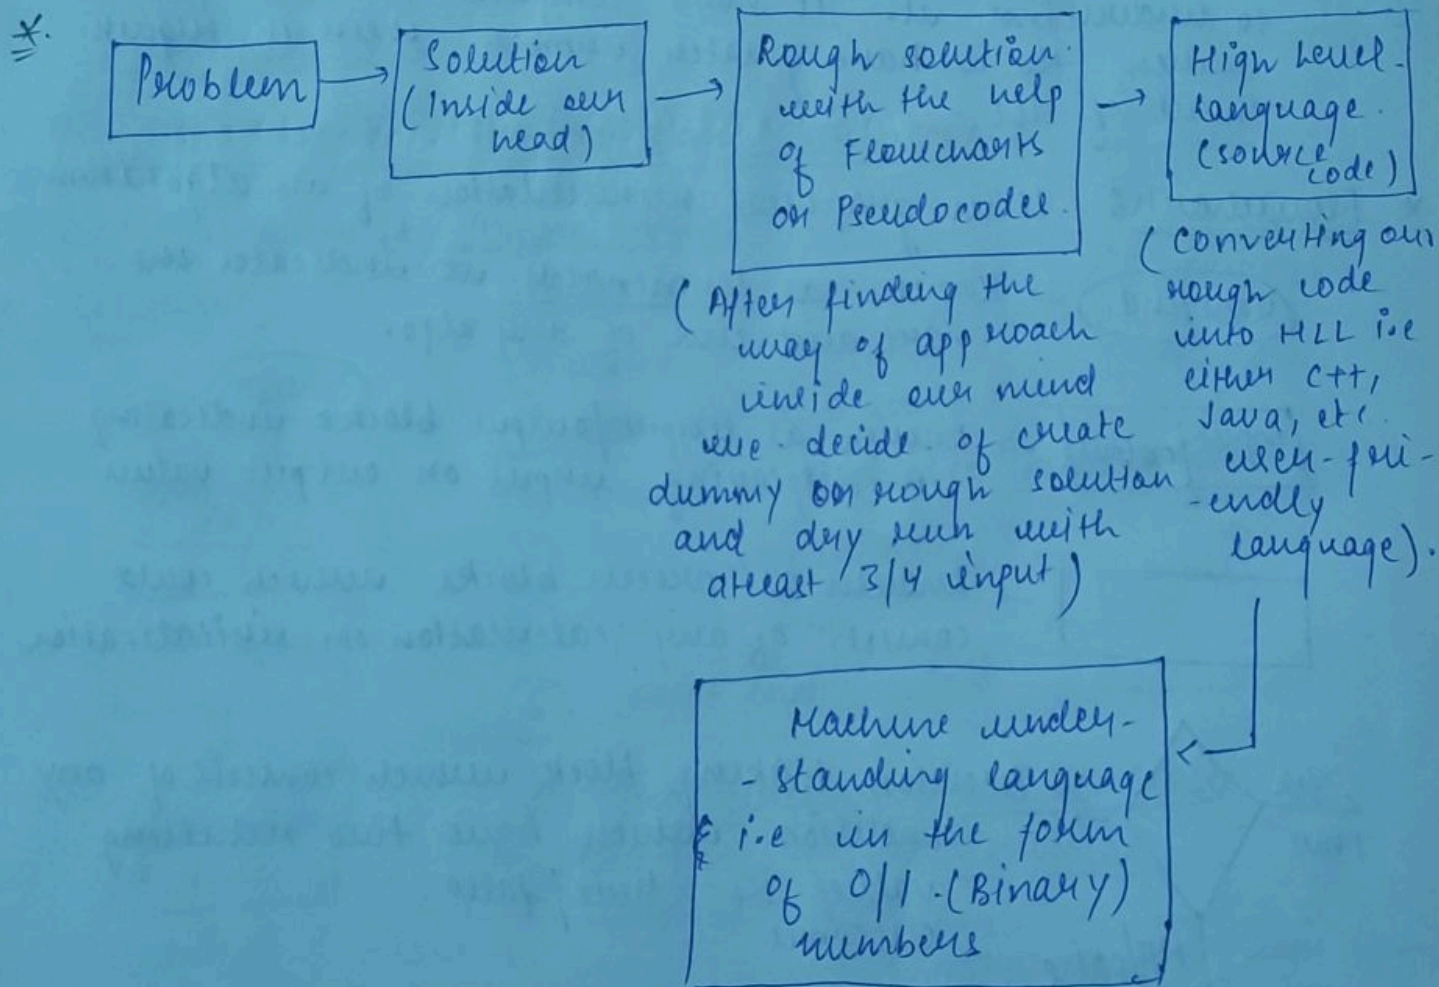 *.
Problem
Solution
(Inside our
head)
Rough solution
with the help
of Flowcharts
or Pseudocode.
High Level
language.
(source
code)
(After finding the
way of approach
inside our mind
we decide of create
dummy or rough solution
and dry run with
atleast 3/4 input)
(Converting our
rough code
into HLL i.e
either C++,
Java, etc.
user-fri-
-endly
language).
Machine under-
-standing language
i.e in the form
of 0/1 (Binary)
numbers